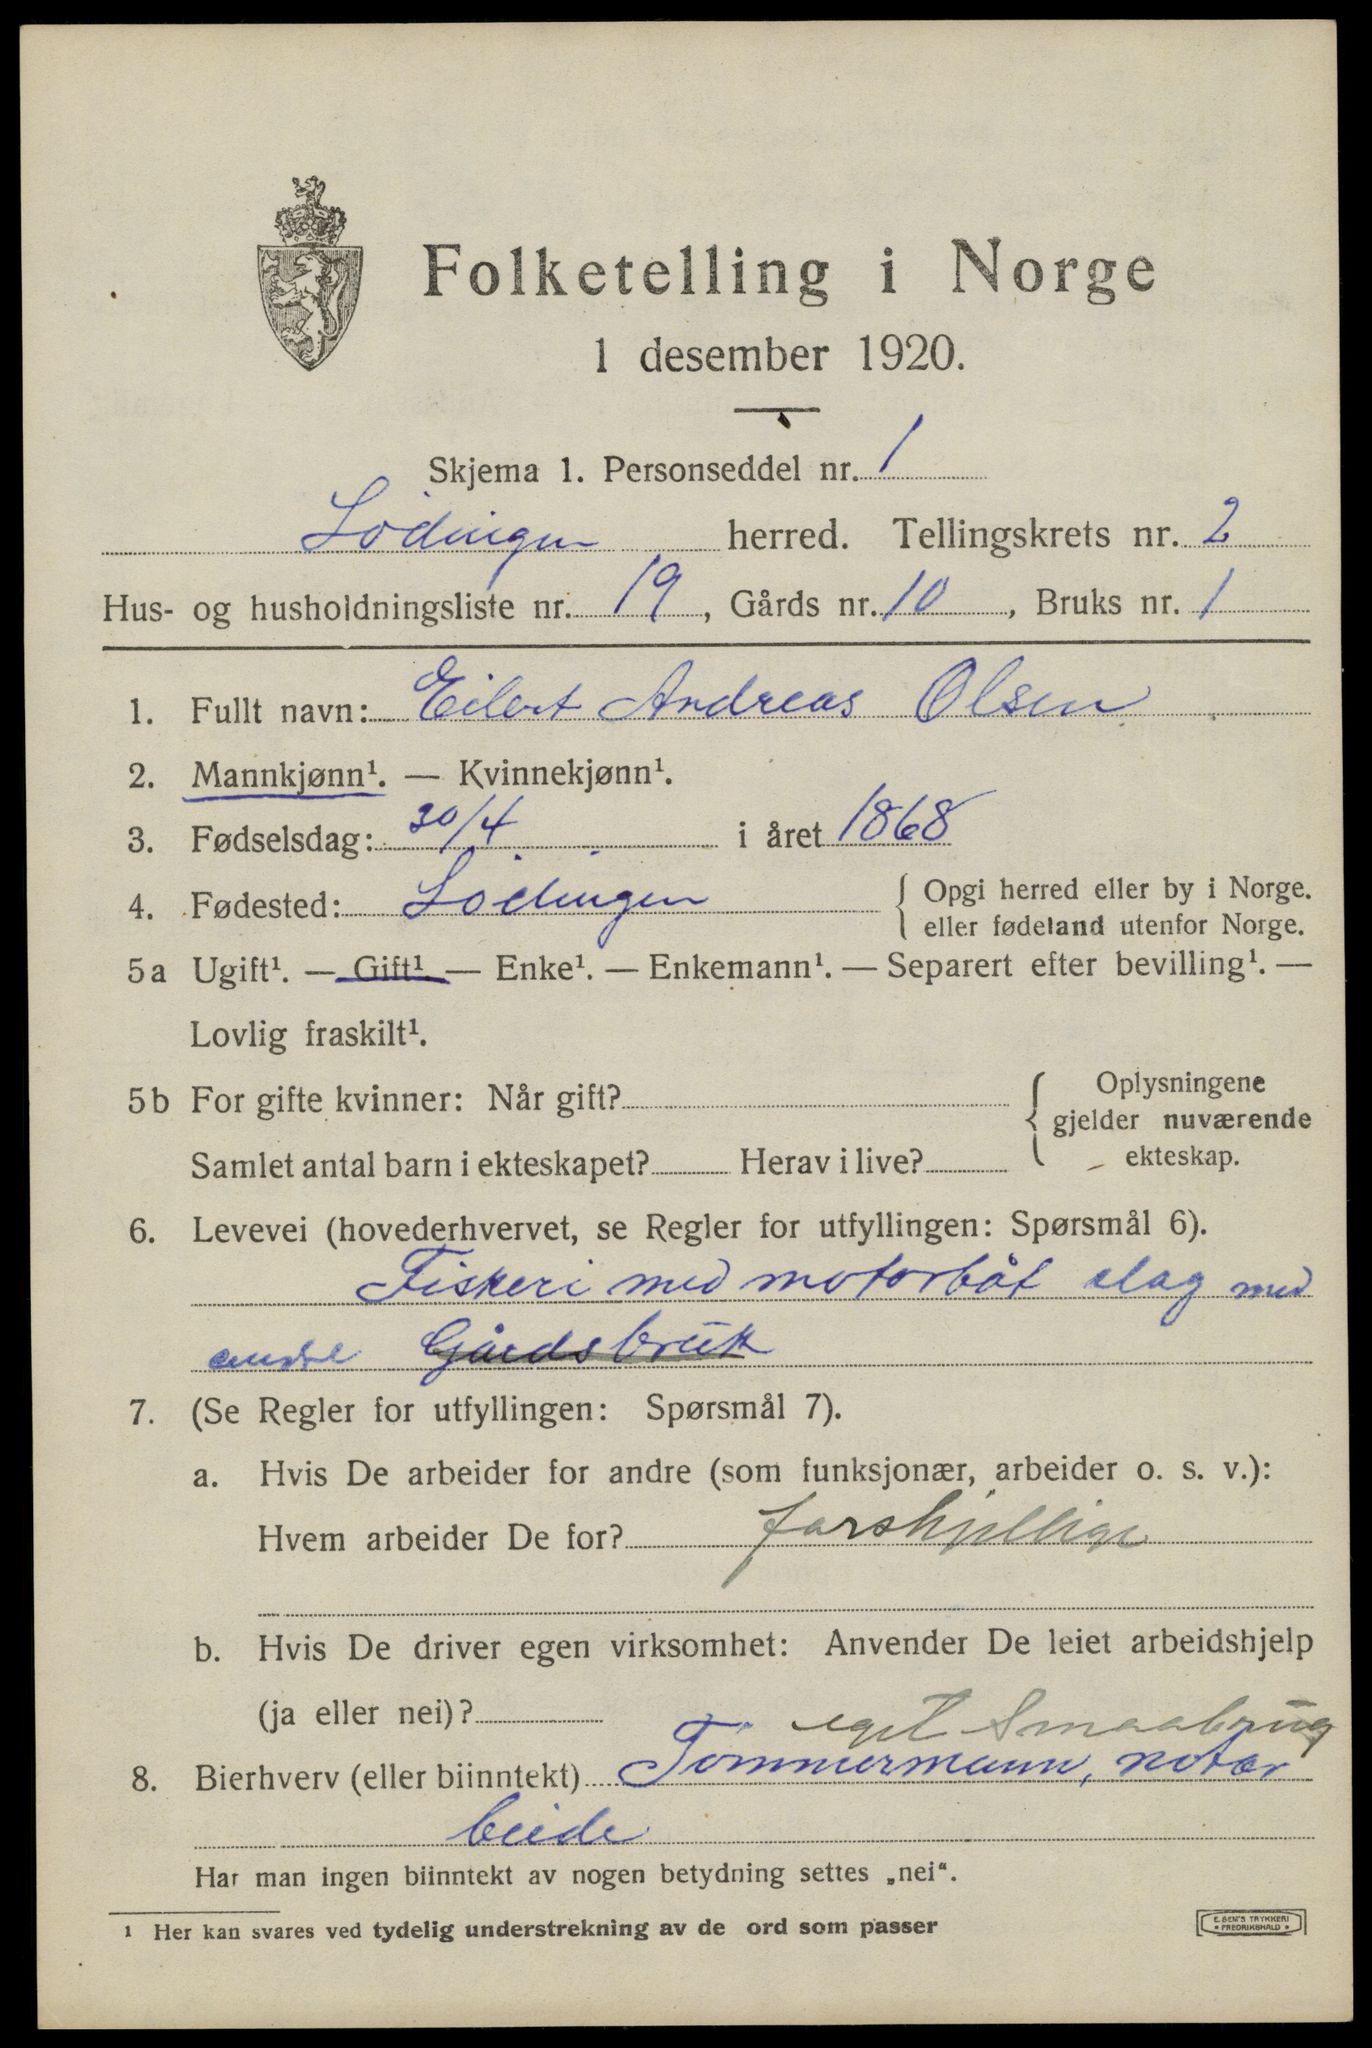 Folketelling i Norge
1 desember 1920.
Skjema 1. Personseddel nr. 1
Lödingen herred. Tellingskrets nr. 2
Hus- og husholdningsliste nr. 19, Gårds nr. 10, Bruks nr. 1
1. Fullt navn: Eilert Andreas Olsen
2. Mannkjønn¹. — Kvinnekjønn¹.
3. Fødselsdag: 30/4 i året 1868
4. Fødested: Lödingen { Opgi herred eller by i Norge.
eller fødeland utenfor Norge.
5a Ugift¹. — Gift¹ — Enke¹. — Enkemann¹. — Separert efter bevilling¹. —
Lovlig fraskilt¹.
5b For gifte kvinner: Når gift? { Oplysningene
gjelder nuværende
Samlet antal barn i ekteskapet? Herav i live? ekteskap.
6. Levevei (hovederhvervet, se Regler for utfyllingen: Spørsmål 6).
Fiskeri med motorbåt i lag med
andre Gårdsbruk
7. (Se Regler for utfyllingen: Spørsmål 7).
a. Hvis De arbeider for andre (som funksjonær, arbeider o. s. v.):
Hvem arbeider De for? forskjellige
b. Hvis De driver egen virksomhet: Anvender De leiet arbeidshjelp
(ja eller nei)?
eget Smaabrug
8. Bierhverv (eller biinntekt) Tömmermann, notar
beide
Har man ingen biinntekt av nogen betydning settes „nei“.
¹ Her kan svares ved tydelig understrekning av de ord som passer
E. SEM'S TRYKKERI
• FREDRIKSHALD •